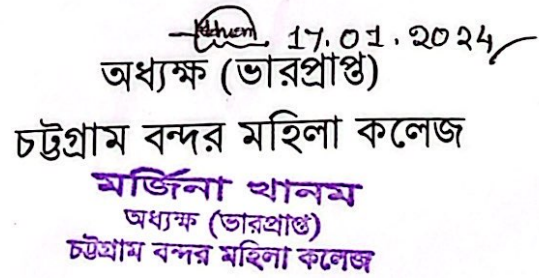 17.01.2024
অধ্যক্ষ (ভারপ্রাপ্ত)
চট্টগ্রাম বন্দর মহিলা কলেজ
মর্জিনা খানম
অধ্যক্ষ (ভারপ্রাপ্ত)
চট্টগ্রাম বন্দর মহিলা কলেজ